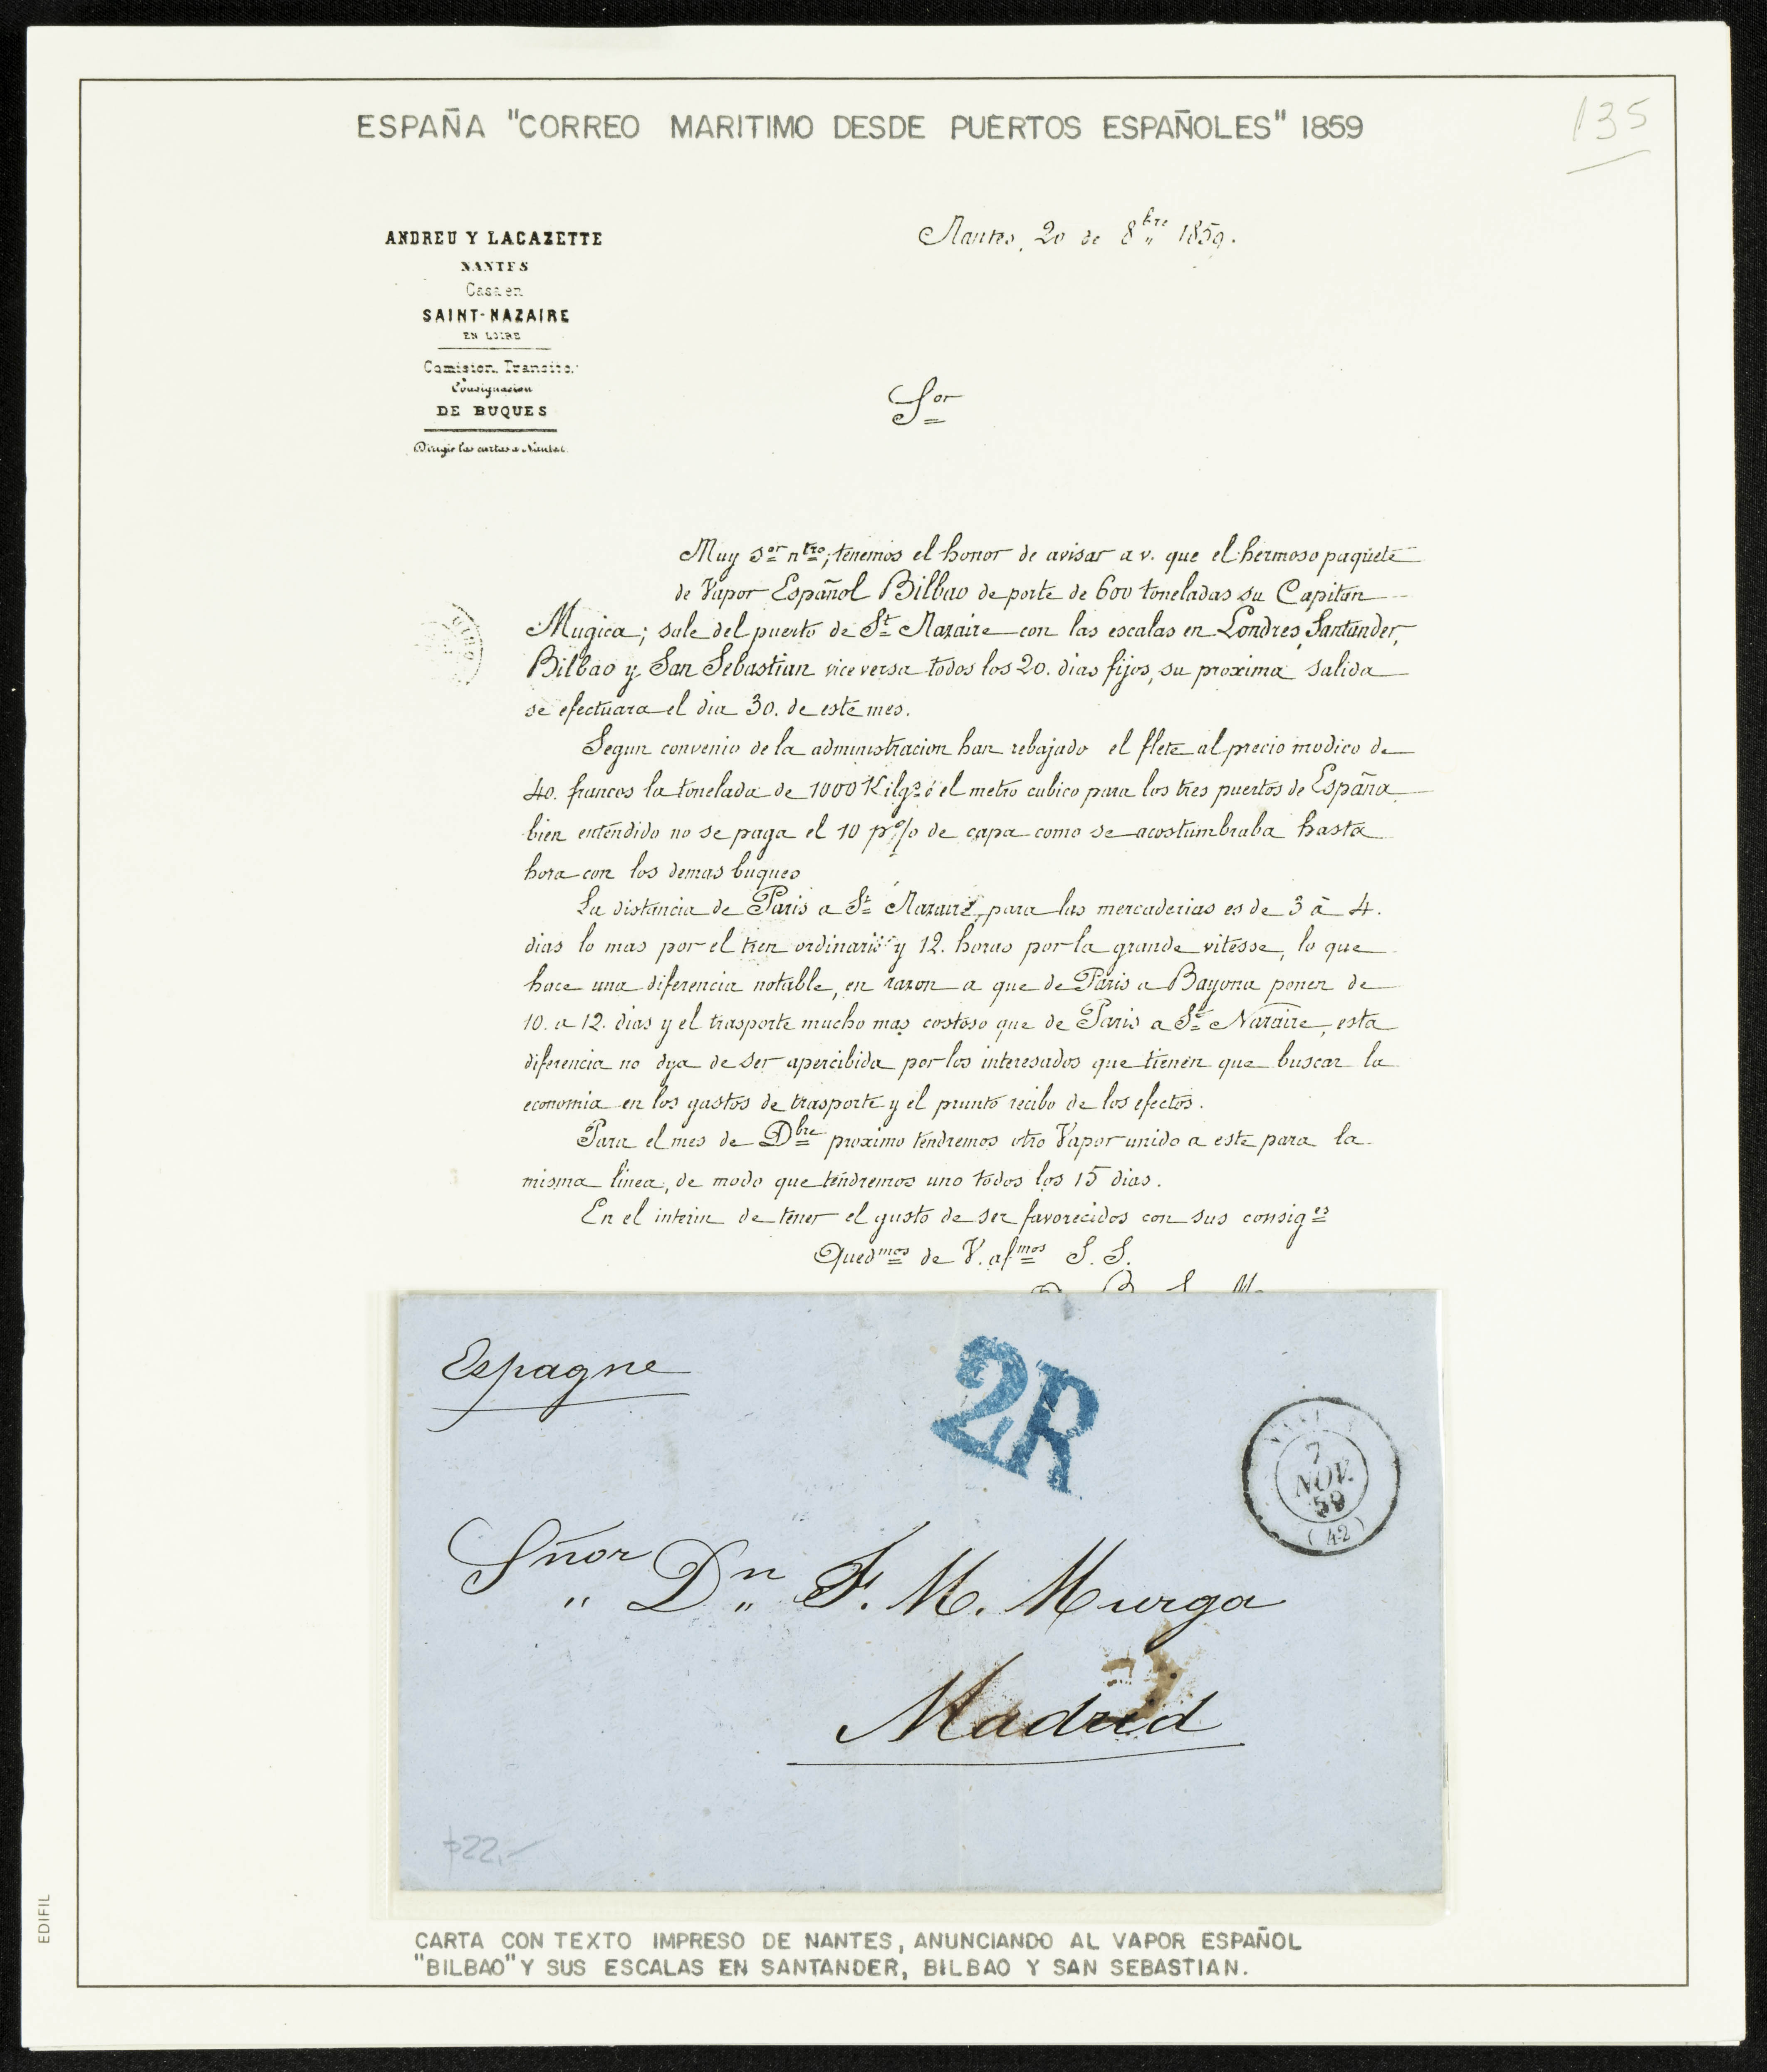 ESPAÑA "CORREO MARITIMO DESDE PUERTOS ESPAÑOLES" 1859
135
ANDREU Y LACAZETTE
NANTES
Casa en
SAINT-NAZAIRE
EN LOIRE
Comision, Transito,
Consignacion
DE BUQUES
Dirigir las cartas a Nantes.
Nantes, 20 de 8bre 1859.
Sor
Muy Sor ntro; tenemos el honor de avisar a v. que el hermoso paquete
de Vapor Español Bilbao de porte de 600 toneladas su Capitan
Mugica; sale del puerto de St Nazaire con las escalas en Londres, Santander,
Bilbao y San Sebastian vice versa todos los 20. dias fijos, su proxima salida
se efectuara el dia 30. de este mes.
Segun convenio de la administracion han rebajado el flete al precio modico de
40. francos la tonelada de 1000 Kilgs ó el metro cubico para los tres puertos de España
bien entendido no se paga el 10 p% de capa como se acostumbraba hasta
hora con los demas buques
La distancia de Paris a St Nazaire, para las mercaderias es de 3 à 4.
dias lo mas por el tren ordinario y 12. horas por la grande vitesse, lo que
hace una diferencia notable, en razon a que de Paris a Bayona ponen de
10. a 12. dias y el trasporte mucho mas costoso que de Paris a St Nazaire, esta
diferencia no dya de ser apercibida por los interesados que tienen que buscar la
economia en los gastos de trasporte y el prunto recibo de los efectos.
Para el mes de Dbre proximo tendremos otro Vapor unido a este para la
misma linea, de modo que tendremos uno todos los 15 dias.
En el interin de tener el gusto de ser favorecidos con sus consiges
Quedmos de V. afmos S. S.
Espagne
2R
7
NOV.
59
(42)
Sñor Dn F. M. Murga
Madrid
22,-
EDIFIL
CARTA CON TEXTO IMPRESO DE NANTES, ANUNCIANDO AL VAPOR ESPAÑOL
"BILBAO" Y SUS ESCALAS EN SANTANDER, BILBAO Y SAN SEBASTIAN.